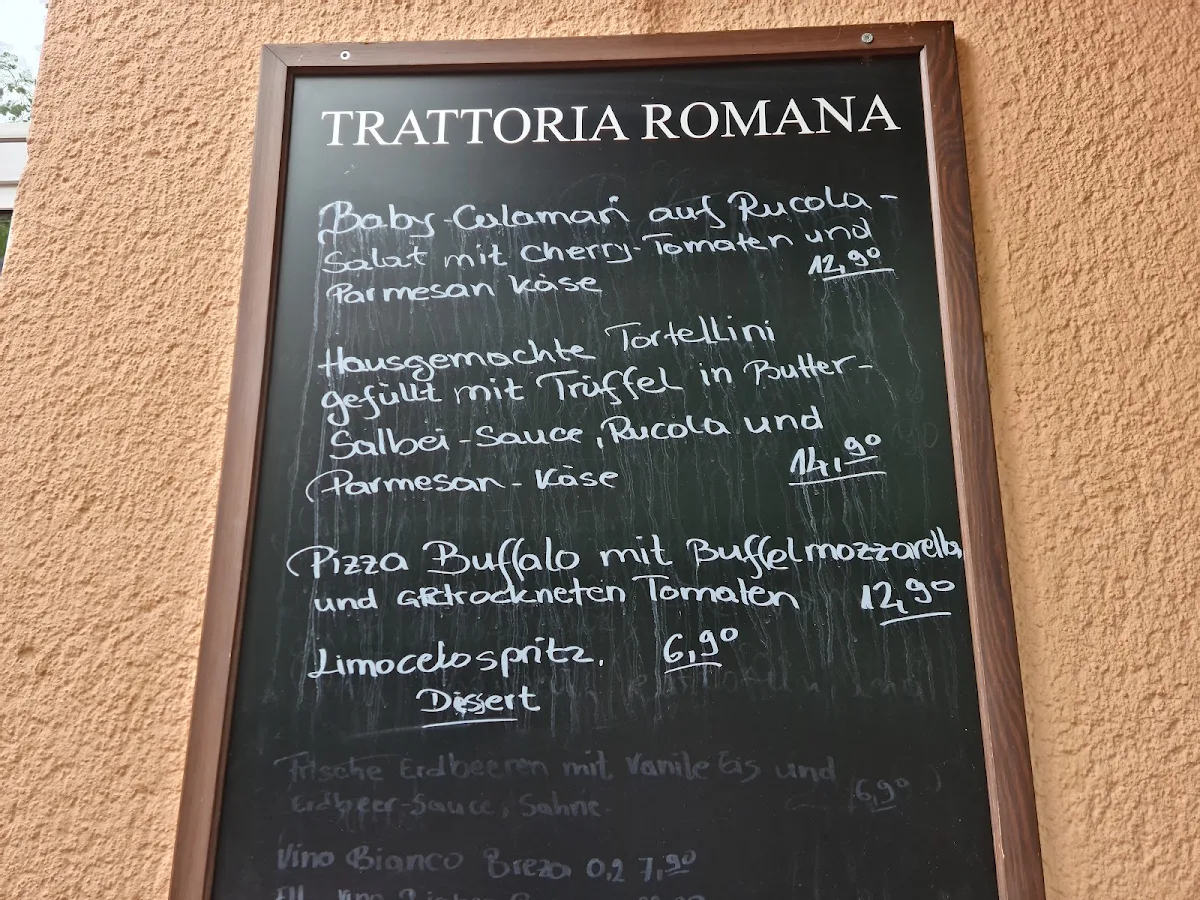 TRATTORIA ROMANA
Baby-Calamari auf Rucola-
Salat mit Cherry-Tomaten und
Parmesan Käse 12,90
Hausgemachte Tortellini
gefüllt mit Trüffel in Butter-
Salbei-Sauce, Rucola und
Parmesan-Käse 14,90
Pizza Buffalo mit Buffelmozzarella
und getrockneten Tomaten 12,90
Limocelospritz. 6,90
Dessert
Frische Erdbeeren mit Vanile Eis und
Erdbeer-Sauce, Sahne 6,90
Vino Bianco Breza 0,2 7,90